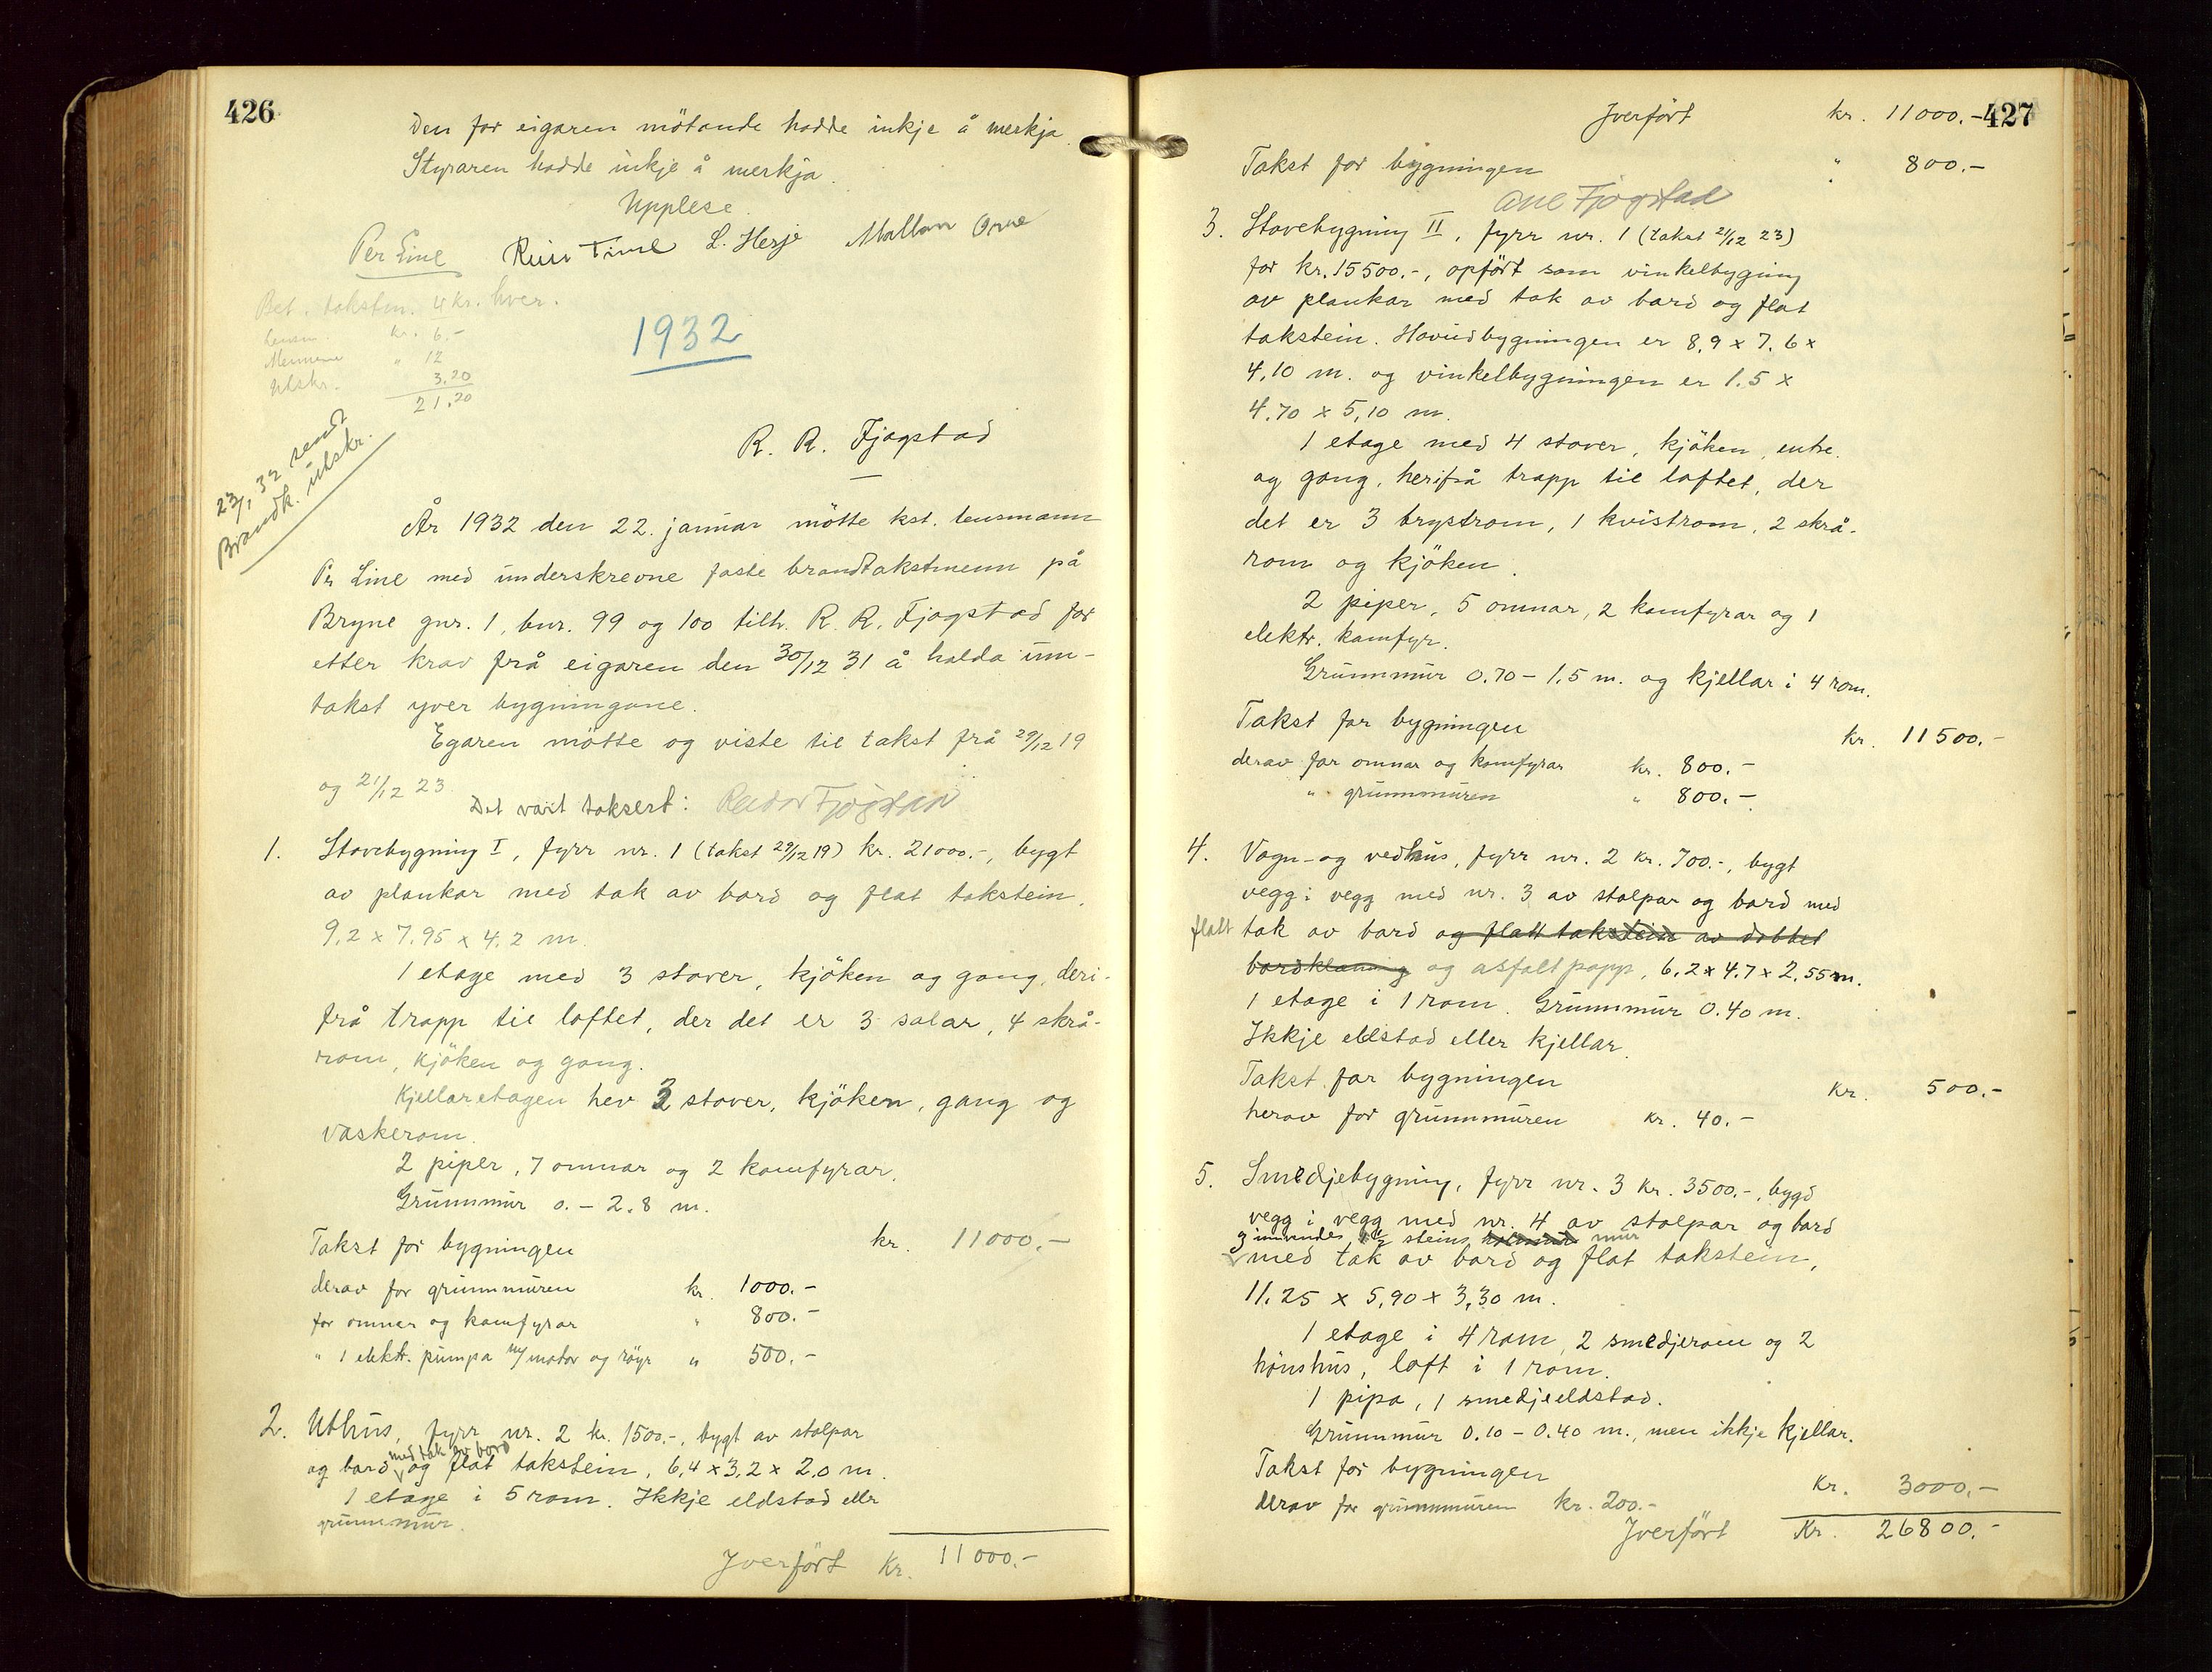 426
Den for eigaren mötande hadde inkje å merkja.
Styraren hadde inkje å merkja.
Upplese.
Per Line Time L. Herje
Bet. takstm. 4 kr. hver.
Lensm. kr. 6.-
Mennene " 12
Utskr. 3.20
21.20
1932
23/1 32 sendt
Brandk. utskr.
R. R. Fjogstad
År 1932 den 22. januar mötte kst. lensmann
Per Line med underskrevne faste brandtakstmenn på
Bryne gnr. 1, bnr. 99 og 100 tilh. R. R. Fjogstad for
etter krav frå eigaren den 30/12 31 å halda um-
takst yver bygningane.
Egaren mötte og viste til takst frå 29/12 19
og 21/12 23.
Det vart taksert: Reidar Fjogstad
1. Stovebygning I, fyrr nr. 1 (takst 29/12 19) kr. 21000.-, bygt
av plankar med tak av bord og flat takstein.
9.2 x 7.95 x 4.2 m.
1 etage med 3 stover, kjöken og gang, deri-
frå trapp til loftet, der det er 3 salar, 4 skrå-
rom, kjöken og gang.
Kjellaretagen hev 3 stover, kjöken, gang og
vaskerom.
2 piper, 7 omnar og 2 komfyrar.
Grunnmur 0. - 2.8 m.
Takst for bygningen kr. 11000.-
derav for grunnmuren kr. 1000.-
for omnar og komfyrar " 800.-
" 1 elektr. pumpa m/motor og röyr " 500.-
2. Uthus, fyrr nr. 2 kr. 1500.-, bygt av stolpar
med tak av bord
og bord og flat takstein, 6,4 x 3,2 x 2,0 m.
1 etage i 5 rom. Ikkje eldstad eller
grunnmur.
Yverfört kr. 11000.-
427
Yverfört kr. 11000.-
Takst for bygningen " 800.-
Ane Fjogstad
3. Stovebygning II, fyrr nr. 1 (takst 21/12 23)
for kr. 15500.-, opfört som vinkelbygning
av plankar med tak av bord og flat
takstein. Hovudbygningen er 8,9 x 7,6 x
4,10 m. og vinkelbygningen er 1.5 x
4,70 x 5,10 m.
1 etage med 4 stover, kjöken, entre.
og gang, herifrå trapp til loftet, der
det er 3 brystrom, 1 kvistrom, 2 skrå-
rom og kjöken.
2 piper, 5 omnar, 2 komfyrar og 1
elektr. komfyr.
Grunnmur 0.70 - 1.5 m. og kjellar i 4 rom.
Takst for bygningen kr. 11500.-
derav for omnar og komfyrar kr. 800.-
" " grunnmuren " 800.-
4. Vogn- og vedhus, fyrr nr. 2 kr. 700.-, bygt
vegg i vegg med nr. 3 av stolpar og bord med
flatt tak av bord og flatt takstein av dobbel
bordklæning og asfaltpapp, 6,2 x 4.7 x 2,55 m.
1 etage i 1 rom. Grunnmur 0.40 m.
Ikkje eldstad eller kjellar.
Takst for bygningen kr. 500.-
herav for grunnmuren kr. 40.-
5. Smedjebygning, fyrr nr. 3 kr. 3500.-, bygd
vegg i vegg med nr. 4 av stolpar og bord
og innvendes 1/2 steins mur
med tak av bord og flat takstein,
11.25 x 5,90 x 3,30 m.
1 etage i 4 rom, 2 smedjerom og 2
hönshus, loft i 1 rom.
1 pipa, 1 smedjeeldstad.
Grunnmur 0.10 - 0.40 m., men ikkje kjellar.
Takst for bygningen kr. 3000.-
derav for grunnmuren kr. 200.-
Yverfört Kr. 26800.-